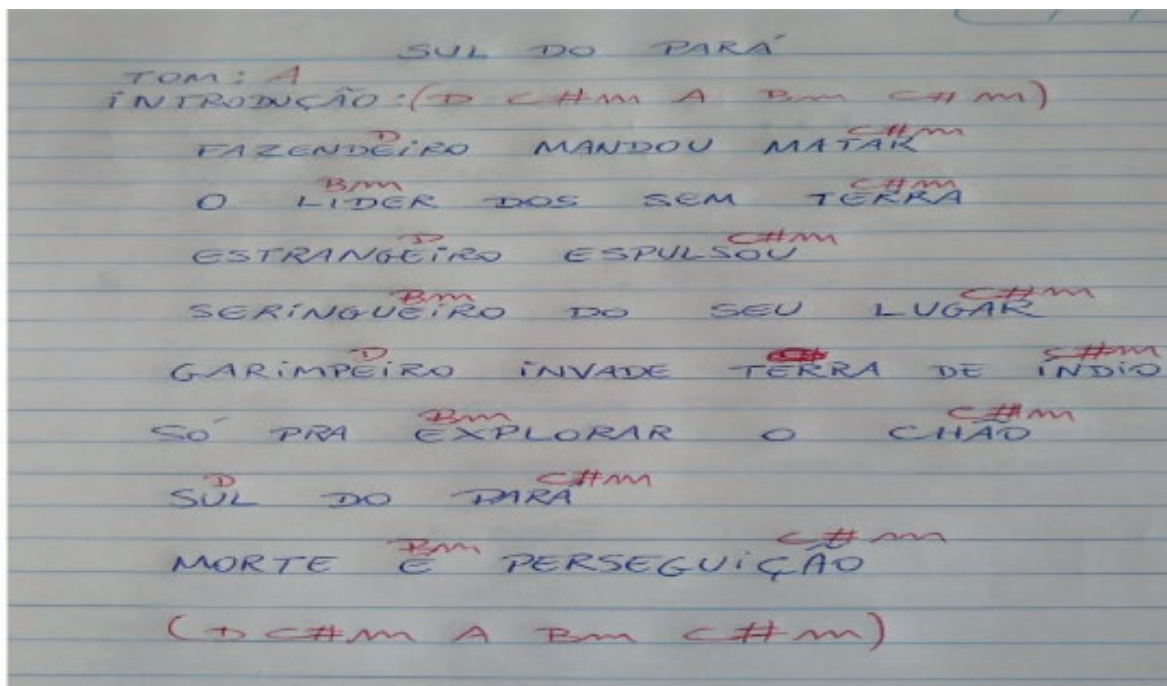 SUL DO PARÁ
TOM: A
INTRODUÇÃO: (D C#m A Bm C#m)
D C#m
FAZENDEIRO MANDOU MATAR
Bm C#m
O LIDER DOS SEM TERRA
D C#m
ESTRANGEIRO ESPULSOU
Bm C#m
SERINGUEIRO DO SEU LUGAR
D C#m
GARIMPEIRO INVADE TERRA DE INDIO
Bm C#m
SÓ PRA EXPLORAR O CHÃO
D C#m
SUL DO PARÁ
Bm C#m
MORTE E PERSEGUIÇÃO
(D C#m A Bm C#m)